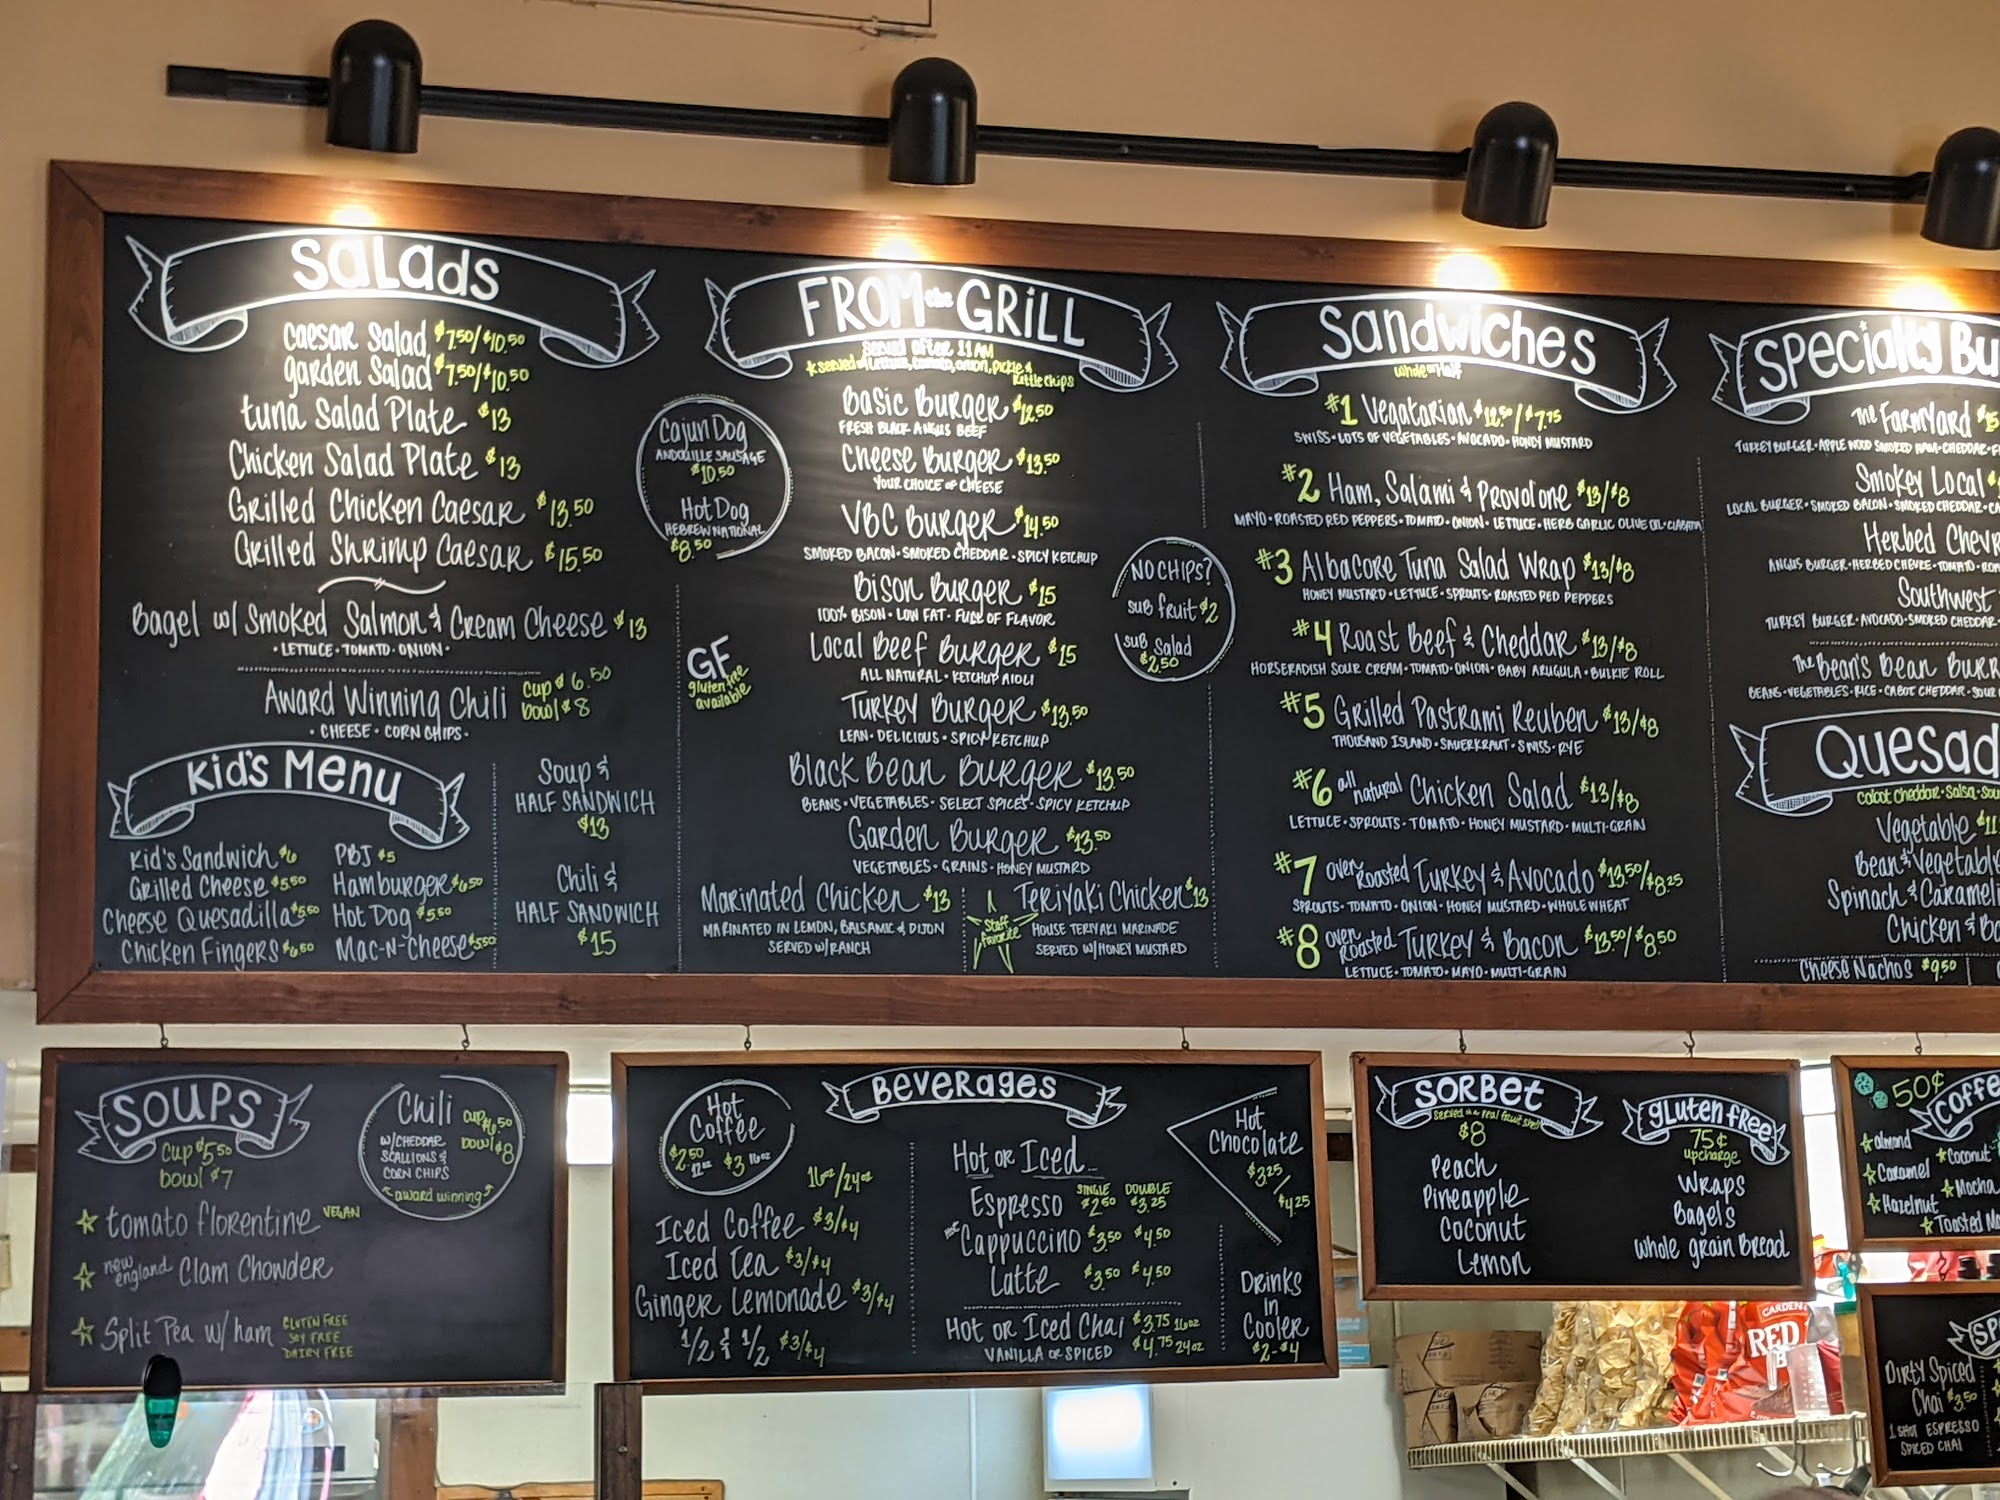 Salads
Caesar Salad $7.50/$10.50
garden Salad $7.50/$10.50
tuna Salad Plate $13
Chicken Salad Plate $13
Grilled Chicken Caesar $13.50
Grilled Shrimp Caesar $15.50
Bagel w/ Smoked Salmon & Cream Cheese $13
• LETTUCE • TOMATO • ONION •
Award Winning Chili cup $6.50
bowl $8
• CHEESE • CORN CHIPS •
Kid's Menu
Kid's Sandwich $6
Grilled Cheese $5.50
Cheese Quesadilla $5.50
Chicken Fingers $6.50
PBJ $5
Hamburger $6.50
Hot Dog $5.50
Mac-N-Cheese $5.50
Soup &
HALF SANDWICH
$13
Chili &
HALF SANDWICH
$15
Cajun Dog
ANDOUILLE SAUSAGE
$10.50
Hot Dog
HEBREW NATIONAL
$8.50
GF
gluten free
available
FROM the GRILL
Served after 11 AM
* served w/ lettuce, tomato, onion, pickle &
Kettle Chips
Basic Burger $12.50
FRESH BLACK ANGUS BEEF
Cheese Burger $13.50
YOUR CHOICE OF CHEESE
VBC Burger $14.50
SMOKED BACON • SMOKED CHEDDAR • SPICY KETCHUP
Bison Burger $15
100% BISON • LOW FAT • FULL OF FLAVOR
Local Beef Burger $15
ALL NATURAL • KETCHUP AIOLI
Turkey Burger $13.50
LEAN • DELICIOUS • SPICY KETCHUP
Black Bean Burger $13.50
BEANS • VEGETABLES • SELECT SPICES • SPICY KETCHUP
Garden Burger $13.50
VEGETABLES • GRAINS • HONEY MUSTARD
Marinated Chicken $13
MARINATED IN LEMON, BALSAMIC & DIJON
SERVED W/RANCH
Staff
favorite
Teriyaki Chicken $13
HOUSE TERIYAKI MARINADE
SERVED W/HONEY MUSTARD
NO CHIPS?
sub fruit $2
sub salad
$2.50
Sandwiches
whole or Half
#1 Vegatarian $12.50/$7.75
SWISS • LOTS OF VEGETABLES • AVOCADO • HONEY MUSTARD
#2 Ham, Salami & Provolone $13/$8
MAYO • ROASTED RED PEPPERS • TOMATO • ONION • LETTUCE • HERB GARLIC OLIVE OIL • CIABATTA
#3 Albacore Tuna Salad Wrap $13/$8
HONEY MUSTARD • LETTUCE • SPROUTS • ROASTED RED PEPPERS
#4 Roast Beef & Cheddar $13/$8
HORSERADISH SOUR CREAM • TOMATO • ONION • BABY ARUGULA • BULKIE ROLL
#5 Grilled Pastrami Reuben $13/$8
THOUSAND ISLAND • SAUERKRAUT • SWISS • RYE
#6 all natural Chicken Salad $13/$8
LETTUCE • SPROUTS • TOMATO • HONEY MUSTARD • MULTI-GRAIN
#7 Oven Roasted Turkey & Avocado $13.50/$8.25
SPROUTS • TOMATO • ONION • HONEY MUSTARD • WHOLE WHEAT
#8 Oven Roasted Turkey & Bacon $13.50/$8.50
LETTUCE • TOMATO • MAYO • MULTI-GRAIN
Specialty Bu
The Farmyard $15
TURKEY BURGER • APPLE WOOD SMOKED HAM • CHEDDAR •
Smokey Local
LOCAL BURGER • SMOKED BACON • SMOKED CHEDDAR •
Herbed Chevr
ANGUS BURGER • HERBED CHEVRE • TOMATO •
Southwest
TURKEY BURGER • AVOCADO • SMOKED CHEDDAR •
The Bean's Bean Burr
BEANS • VEGETABLES • RICE • CABOT CHEDDAR • SOUR
Quesad
Cabot cheddar • Salsa • Sou
Vegetable $11
Bean & Vegetable
Spinach & Carameli
Chicken & Ba
Cheese Nachos $9.50
SOUPS
cup $5.50
bowl $7
tomato florentine VEGAN
new england Clam Chowder
Split Pea w/ ham GLUTEN FREE
SOY FREE
DAIRY FREE
Chili cup $6.50
bowl $8
W/CHEDDAR
SCALLIONS &
CORN CHIPS
award winning
Beverages
Hot
Coffee
$2.50 12oz $3 16oz
16oz/24oz
Iced Coffee $3/$4
Iced Tea $3/$4
Ginger Lemonade $3/$4
1/2 & 1/2 $3/$4
Hot or Iced...
SINGLE DOUBLE
Espresso $2.50 $3.25
Cappuccino $3.50 $4.50
Latte $3.50 $4.50
Hot or Iced Chai $3.75 16oz
VANILLA or SPICED $4.75 24oz
Hot
Chocolate
$3.25/
$4.25
Drinks
in
Cooler
$2-$4
SORBET
served in a real fruit shell
$8
Peach
Pineapple
Coconut
Lemon
gluten free
75¢
upcharge
Wraps
Bagels
Whole grain Bread
50¢
Coffe
almond
Caramel
Hazelnut
Coconut
Mocha
Toasted Ma
SP
Dirty Spiced
Chai $3.50
1 SHOT ESPRESSO
SPICED CHAI
GARDEN
RED
B